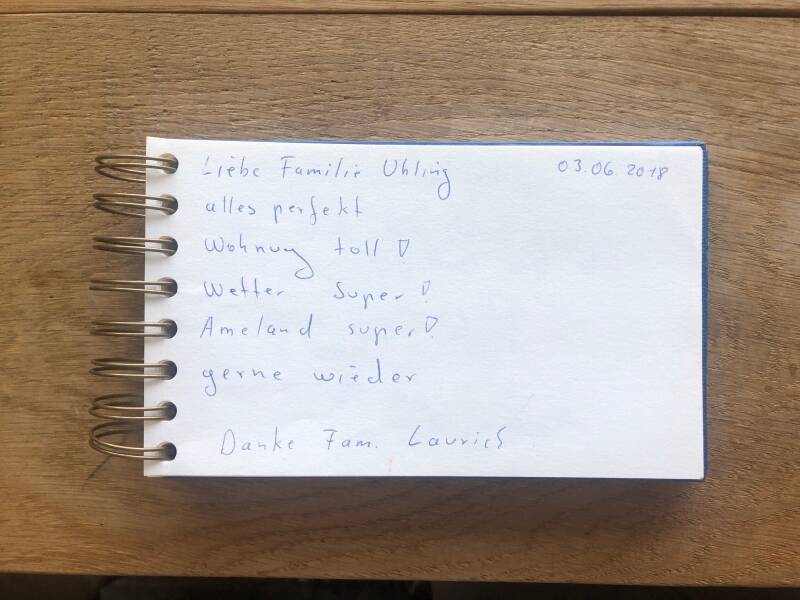 Liebe Familie Uhling 03.06.2018
alles perfekt
Wohnung toll!
Wetter Super!
Ameland super!
gerne wieder
Danke Fam. Laurich